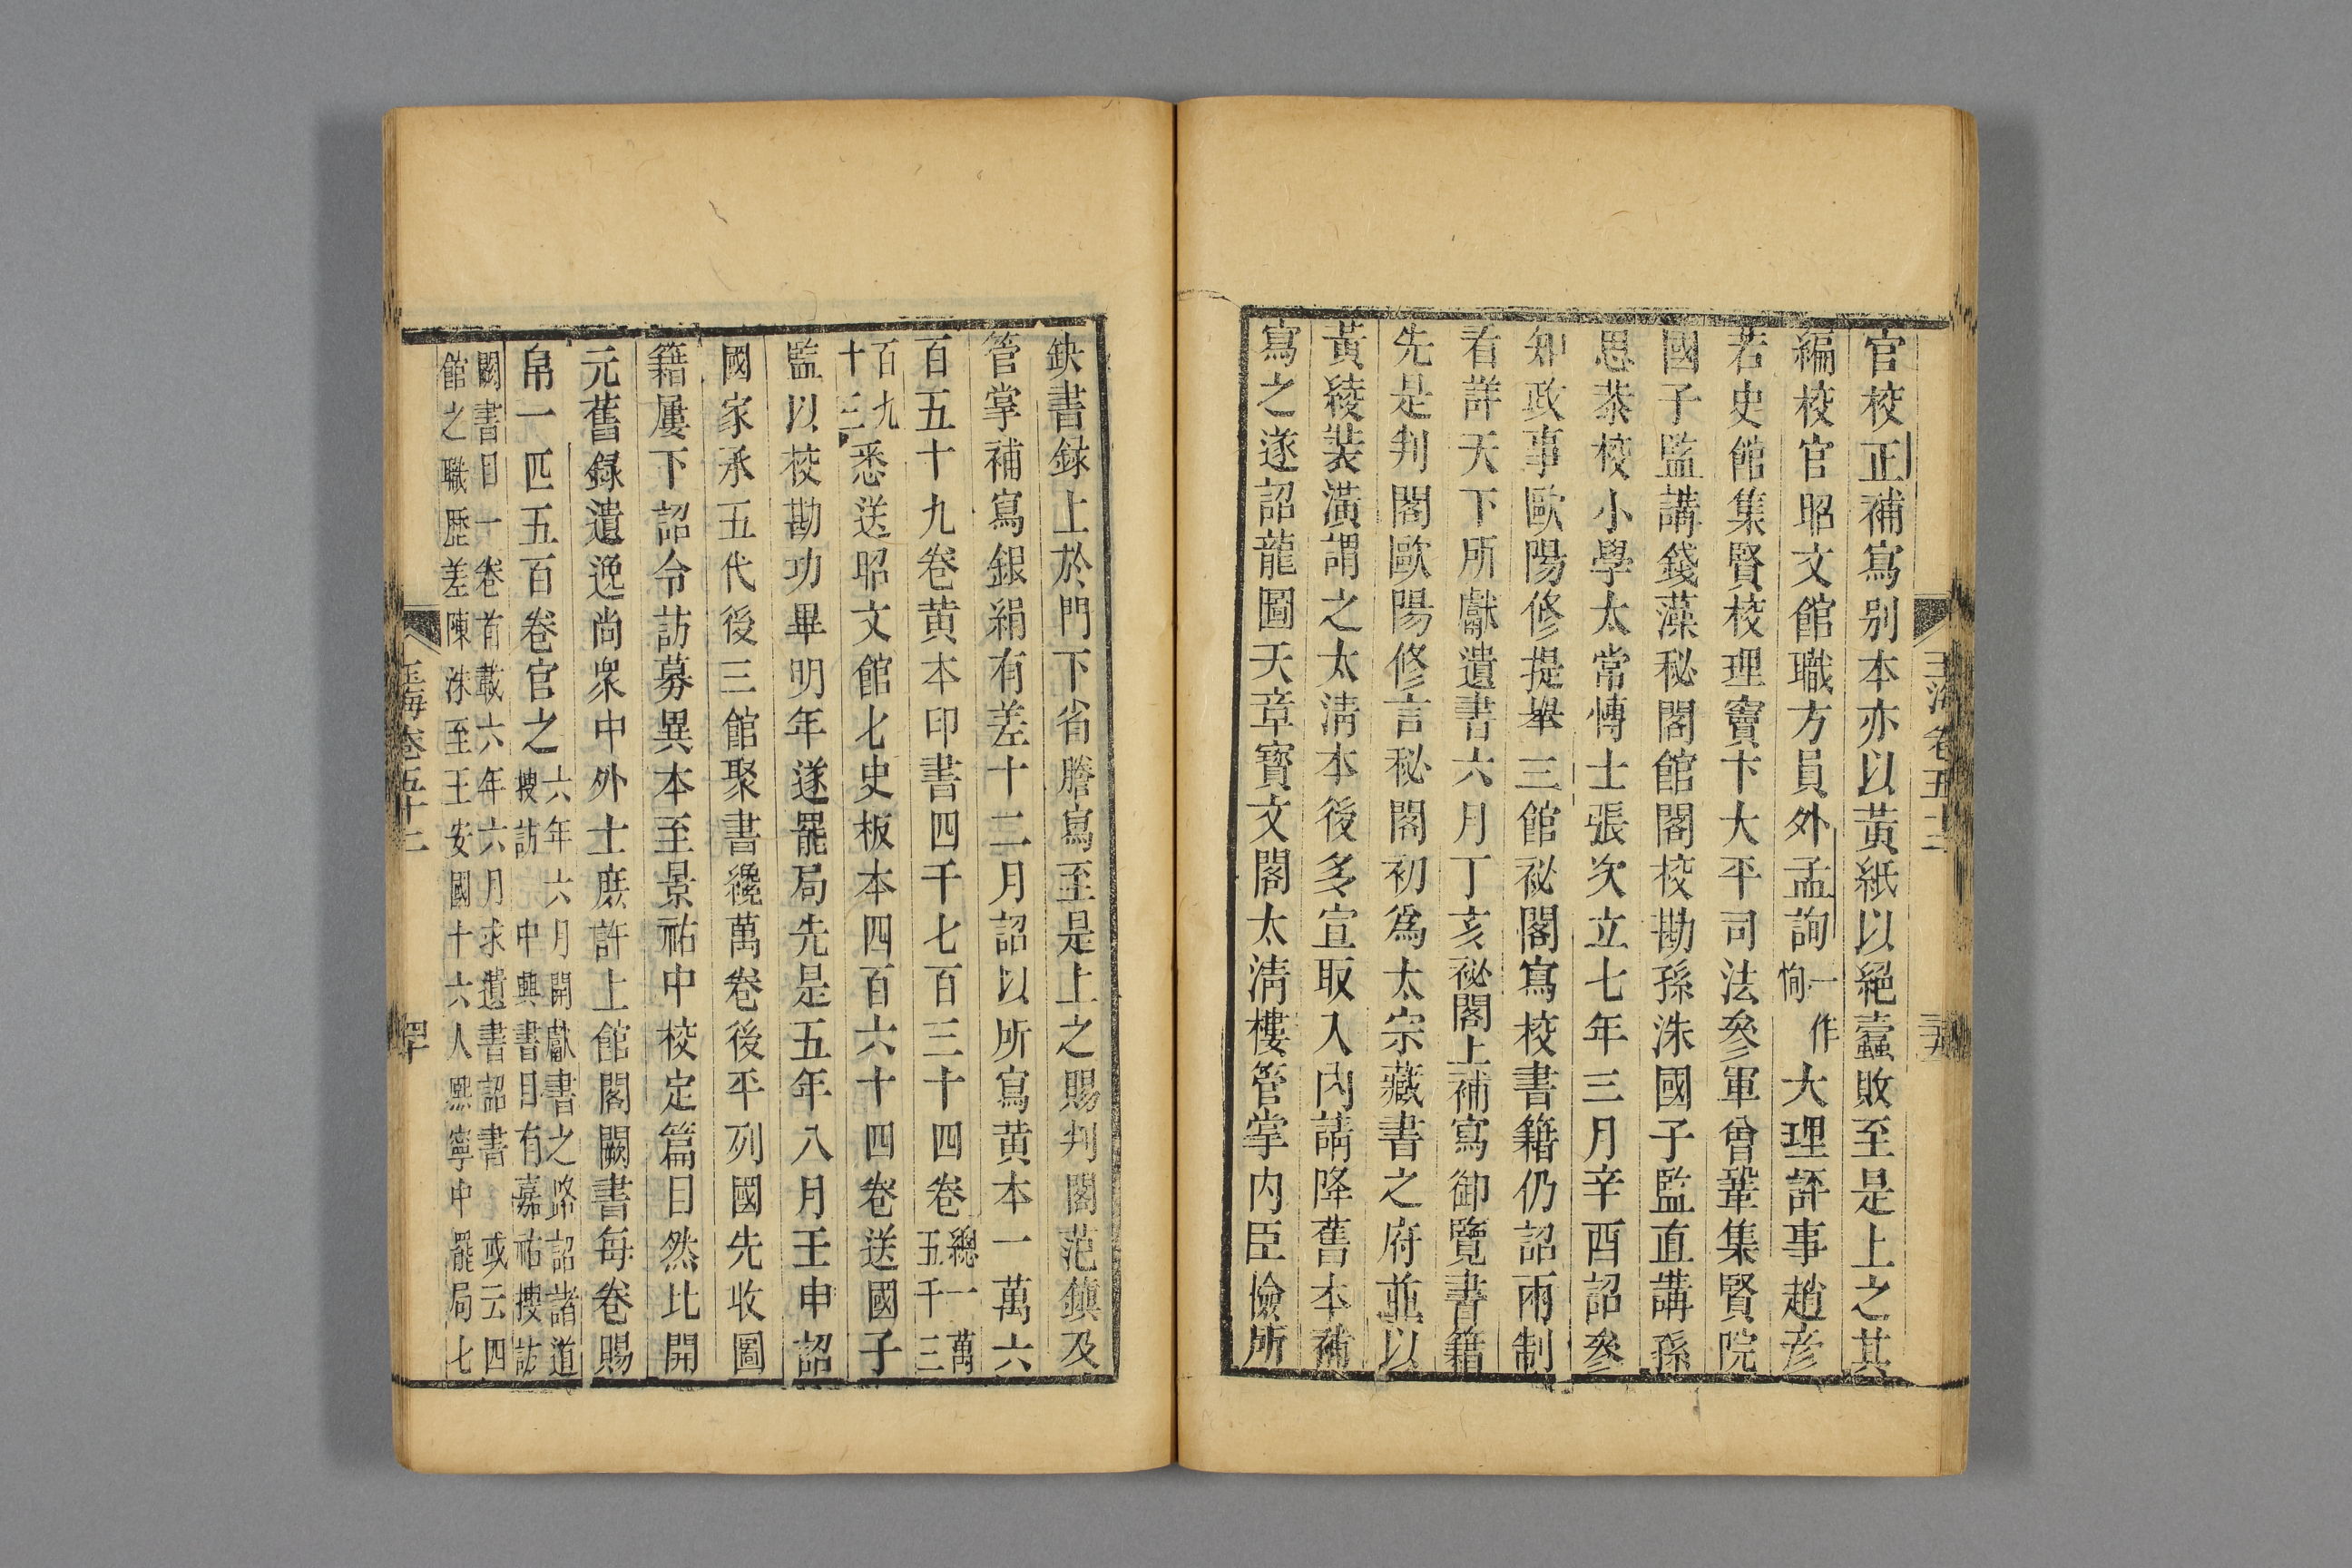 官校正補寫别本亦以黃紙以絕蠧敗至是上之其
編校官昭文館職方員外孟詢一作恂大理評事趙彥
若史館集賢校理竇卞大平司法參軍曾鞏集賢院
國子監講錢藻秘閣館閣校勘孫洙國子監直講孫
思恭校小學太常博士張次立七年三月辛酉詔參
知政事歐陽修提舉三館祕閣寫校書籍仍詔兩制
看詳天下所獻遺書六月丁亥祕閣上補寫御覽書籍
先是判閣歐陽修言秘閣初爲太宗藏書之府並以
黃綾裝潢謂之太淸本後多宣取入內請降舊本補
寫之遂詔龍圖天章寶文閣太淸樓管掌內臣檢所
缺書録上於門下省謄寫至是上之賜判閣范鎮及
管掌補寫銀絹有差十二月詔以所寫黄本一萬六
百五十九卷黄本印書四千七百三十四卷總一萬五千三
百九十三悉送昭文館七史板本四百六十四卷送國子
監以校勘功畢明年遂罷局先是五年八月壬申詔
國家承五代後三館聚書纔萬卷後平列國先收圖
籍屢下詔令訪募異本至景祐中校定篇目然比開
元舊録遺逸尚衆中外士庶許上館閣闕書每卷賜
帛一匹五百卷官之六年六月開獻書之路詔諸道搜訪 中興書目有嘉祐搜訪
闕書目一卷首載六年六月求遺書詔書 或云四館之職歷差陳洙至王安國十六人熙寧中罷局七
玉海卷五十二